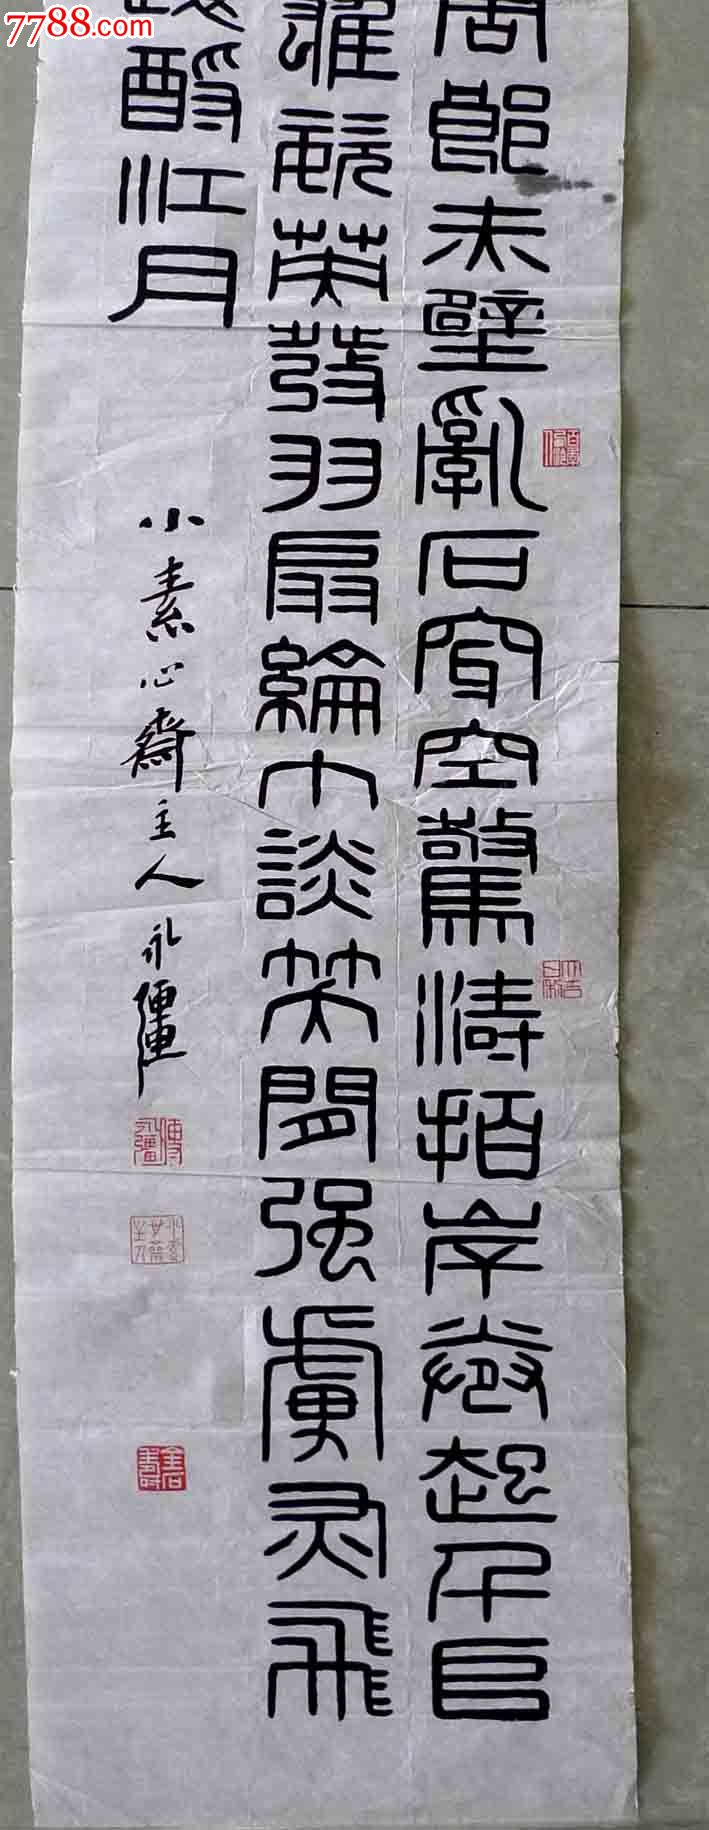 7788.com
周郎赤壁亂石穿空驚濤拍岸卷起千𠂤
雄姿英發羽扇綸巾談笑間强虜灰飛
酹江月
小素心齋主人永